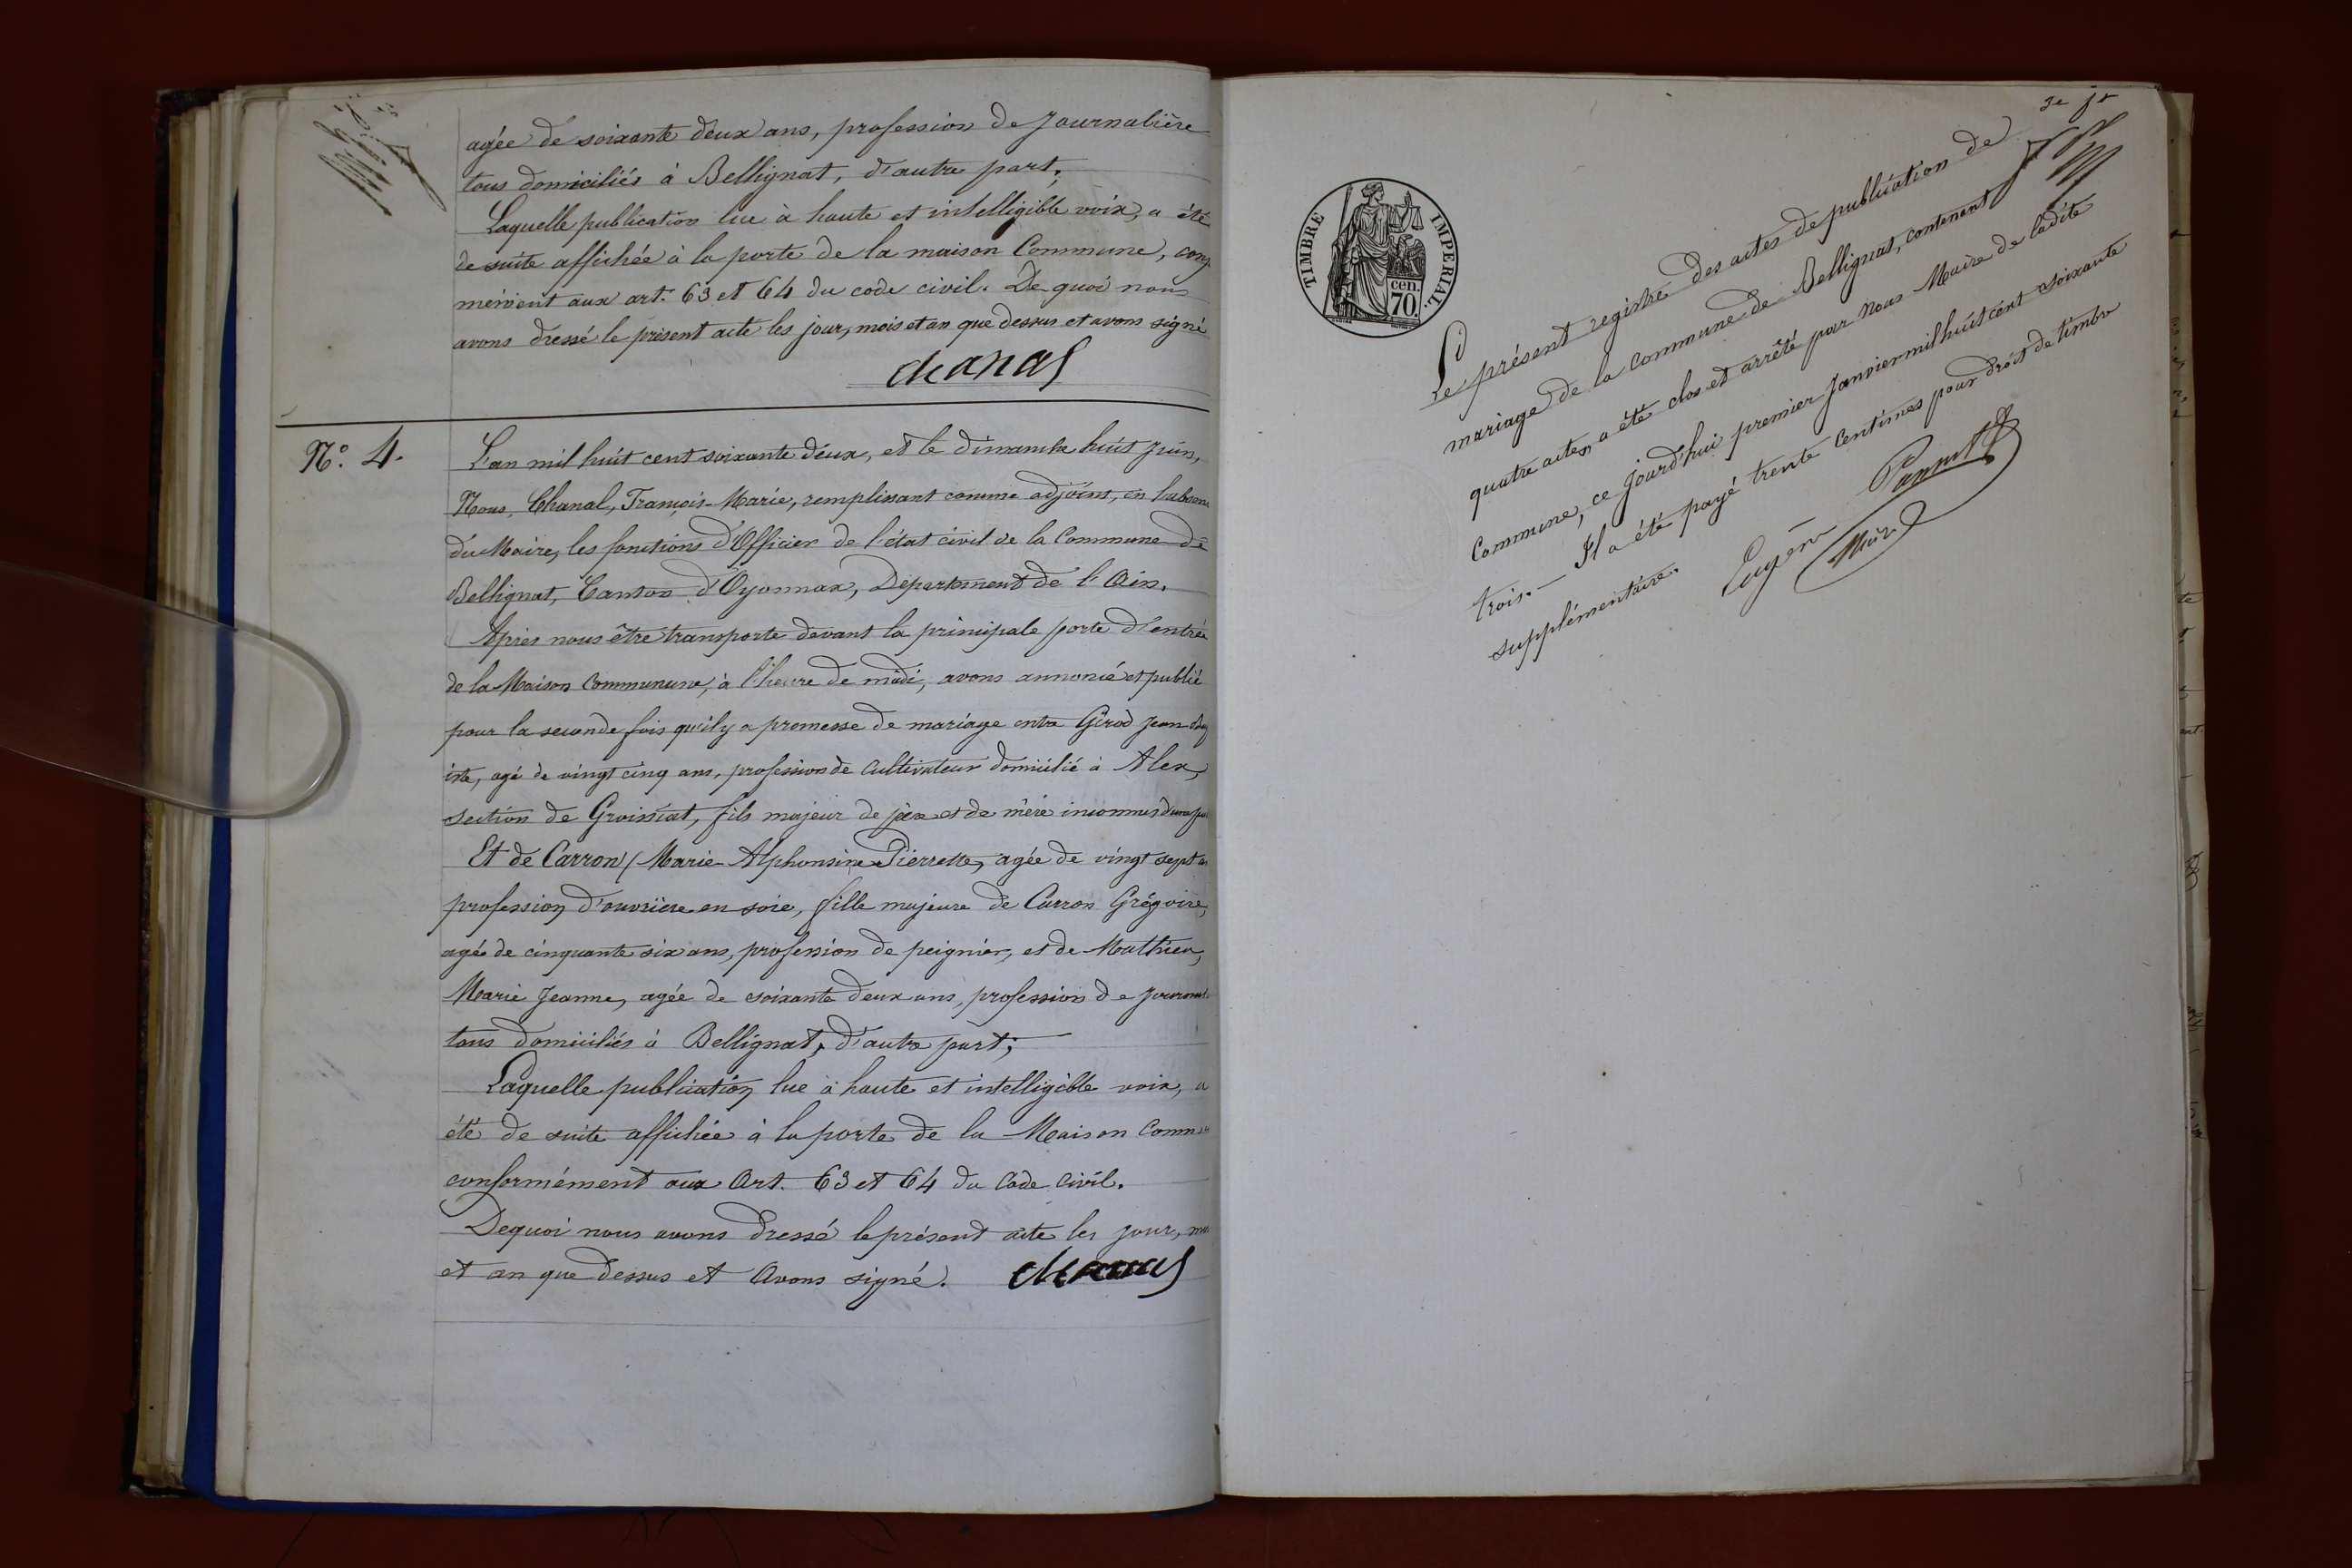 agée de soixante deux ans, profession de Journalière
tous domiciliés à Bellignat, d'autre part;
Laquelle publication lue à haute et intelligible voix, a été
de suite affichée à la porte de la maison Commune, conf
mément aux art. 63 et 64 du code civil. De quoi nous
avons dressé le présent acte les jour, mois et an que dessus et avons signé
chanal
N°. 4.
L'an mil huit cent soixante deux, et le dimanche huit Juin,
Nous, Chanal, François-Marie, remplissant comme adjoint, en l'absence
du Maire, les fonctions d'Officier de l'état civil de la Commune de
Bellignat, Canton d'Oyonnax, Département de l'Ain.
Après nous être transporte devant la principale porte d'entrée
de la Maison communune, à l'heure de midi, avons annoncé et publié
pour la seconde fois qu'il y a promesse de mariage entre Girod Jean Bap
iste, agé de vingt cinq ans, profession de cultivateur domicilié à Alex,
section de Groissiat, fils majeur de père et de mère inconnus d'une part
Et de Carron (Marie-Alphonsine Pierrette, agée de vingt sept a
profession d'ouvrière en soie, fille majeure de Carron Grégoire,
agée de cinquante six ans, profession de peignier, et de Matthieu,
Marie Jeanne, agée de soixante deux ans, profession de Journal
tous domiciliés à Bellignat, d'autre part;
Laquelle publication lue à haute et intelligible voix, a
été de suite affichée à la porte de la Maison Comm
conformément aux Art. 63 et 64 du Code Civil.
Dequoi nous avons dressé le présent acte les jour, m
et an que dessus et Avons signé. chanal
TIMBRE IMPERIAL.
cen.
70.
3e
Le présent registre des actes de publication de
mariage de la commune de Bellignat, contenant
quatre actes, a été clos et arrêté par Nous Maire de ladite
Commune, ce Jourd'hui premier Janvier mil huit cent soixante
trois.- Il a été payé trente centimes pour droit de timbre
supplémentaire.
Eugène
Maire